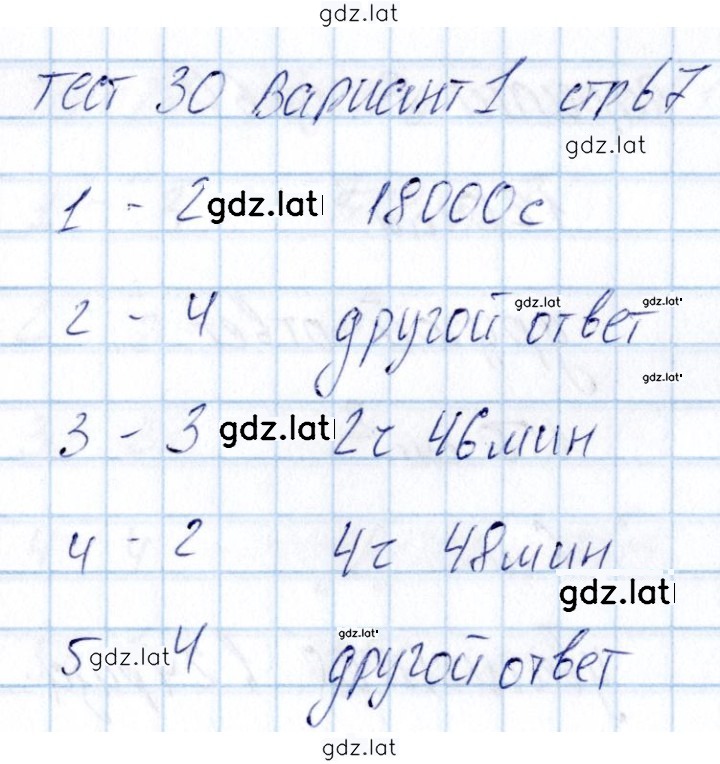 gdz.lat
тест 30 вариант 1 стр 67
gdz.lat
1 - 2 gdz.lat 18000 с
gdz.lat gdz.lat
2 - 4 другой ответ
gdz.lat
3 - 3 gdz.lat 2ч 46 мин
4 - 2 4ч 48 мин
gdz.lat
gdz.lat
5 gdz.lat 4 другой ответ
gdz.lat